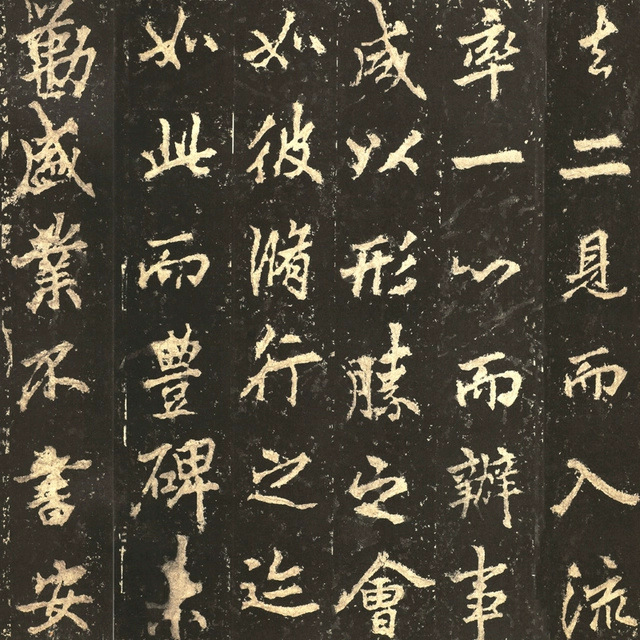 去二見而入流
率一心而辦事
咸以形勝之會
如彼脩行之迹
如此而豐碑未
勒盛業不書安